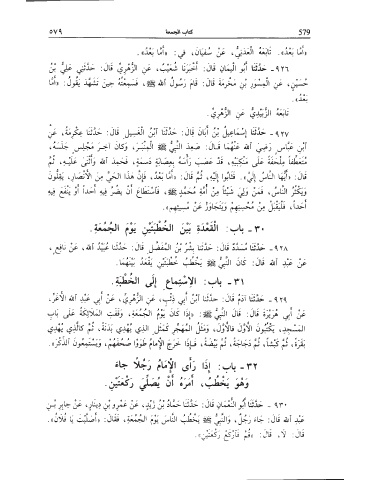 ٥٧٩ كتاب الجمعة 579
«أَمَّا بَعْدُ». تَابَعَهُ الْعَدَنِيُّ، عَنْ سُفْيَانَ، فِي: «أَمَّا بَعْدُ».
٩٢٦ - حَدَّثَنَا أَبُو الْيَمَانِ قَالَ: أَخْبَرَنَا شُعَيْبٌ، عَنِ الزُّهْرِيِّ قَالَ: حَدَّثَنِي عَلِيُّ بْنُ
حُسَيْنٍ، عَنِ الْمِسْوَرِ بْنِ مَخْرَمَةَ قَالَ: قَامَ رَسُولُ اللهِ ﷺ، فَسَمِعْتُهُ حِينَ تَشَهَّدَ يَقُولُ: «أَمَّا
بَعْدُ».
تَابَعَهُ الزُّبَيْدِيُّ عَنِ الزُّهْرِيِّ.
٩٢٧ - حَدَّثَنَا إِسْمَاعِيلُ بْنُ أَبَانَ قَالَ: حَدَّثَنَا ابْنُ الْغَسِيلِ قَالَ: حَدَّثَنَا عِكْرِمَةُ، عَنِ
ابْنِ عَبَّاسٍ رَضِيَ اللهُ عَنْهُمَا قَالَ: صَعِدَ النَّبِيُّ ﷺ الْمِنْبَرَ، وَكَانَ آخِرَ مَجْلِسٍ جَلَسَهُ،
مُتَعَطِّفاً مِلْحَفَةً عَلَى مَنْكِبَيْهِ، قَدْ عَصَبَ رَأْسَهُ بِعِصَابَةٍ دَسِمَةٍ، فَحَمِدَ اللهَ وَأَثْنَى عَلَيْهِ، ثُمَّ
قَالَ: «أَيُّهَا النَّاسُ إِلَيَّ». فَثَابُوا إِلَيْهِ، ثُمَّ قَالَ: «أَمَّا بَعْدُ، فَإِنَّ هَذَا الْحَيَّ مِنَ الْأَنْصَارِ، يَقِلُّونَ
وَيَكْثُرُ النَّاسُ، فَمَنْ وَلِيَ شَيْئاً مِنْ أُمَّةِ مُحَمَّدٍ ﷺ، فَاسْتَطَاعَ أَنْ يَضُرَّ فِيهِ أَحَداً أَوْ يَنْفَعَ فِيهِ
أَحَداً، فَلْيَقْبَلْ مِنْ مُحْسِنِهِمْ وَيَتَجَاوَزْ عَنْ مُسِيئِهِم».
٣٠ - باب: الْقَعْدَةِ بَيْنَ الْخُطْبَتَيْنِ يَوْمَ الْجُمُعَةِ.
٩٢٨ - حَدَّثَنَا مُسَدَّدٌ قَالَ: حَدَّثَنَا بِشْرُ بْنُ الْمُفَضَّلِ قَالَ: حَدَّثَنَا عُبَيْدُ اللهِ، عَنْ نَافِعٍ،
عَنْ عَبْدِ اللهِ قَالَ: كَانَ النَّبِيُّ ﷺ يَخْطُبُ خُطْبَتَيْنِ يَقْعُدُ بَيْنَهُمَا.
٣١ - باب: الِاسْتِمَاعِ إِلَى الْخُطْبَةِ.
٩٢٩ - حَدَّثَنَا آدَمُ قَالَ: حَدَّثَنَا ابْنُ أَبِي ذِئْبٍ، عَنِ الزُّهْرِيِّ، عَنْ أَبِي عَبْدِ اللهِ الْأَغَرِّ،
عَنْ أَبِي هُرَيْرَةَ قَالَ: قَالَ النَّبِيُّ ﷺ: «إِذَا كَانَ يَوْمُ الْجُمُعَةِ، وَقَفَتِ الْمَلَائِكَةُ عَلَى بَابِ
الْمَسْجِدِ، يَكْتُبُونَ الْأَوَّلَ فَالْأَوَّلَ، وَمَثَلُ الْمُهَجِّرِ كَمَثَلِ الَّذِي يُهْدِي بَدَنَةً، ثُمَّ كَالَّذِي يُهْدِي
بَقَرَةً، ثُمَّ كَبْشاً، ثُمَّ دَجَاجَةً، ثُمَّ بَيْضَةً، فَإِذَا خَرَجَ الْإِمَامُ طَوَوْا صُحُفَهُمْ، وَيَسْتَمِعُونَ الذِّكْرَ».
٣٢ - باب: إِذَا رَأَى الْإِمَامُ رَجُلًا جاءَ
وَهُوَ يَخْطُبُ، أَمَرَهُ أَنْ يُصَلِّيَ رَكْعَتَيْنِ.
٩٣٠ - حَدَّثَنَا أَبُو النُّعْمَانِ قَالَ: حَدَّثَنَا حَمَّادُ بْنُ زَيْدٍ، عَنْ عَمْرِو بْنِ دِينَارٍ، عَنْ جَابِرِ بْنِ
عَبْدِ اللهِ قَالَ: جَاءَ رَجُلٌ، وَالنَّبِيُّ ﷺ يَخْطُبُ النَّاسَ يَوْمَ الْجُمُعَةِ، فَقَالَ: «أَصَلَّيْتَ يَا فُلَانُ».
قَالَ: لَا، قَالَ: «قُمْ فَارْكَعْ رَكْعَتَيْنِ».